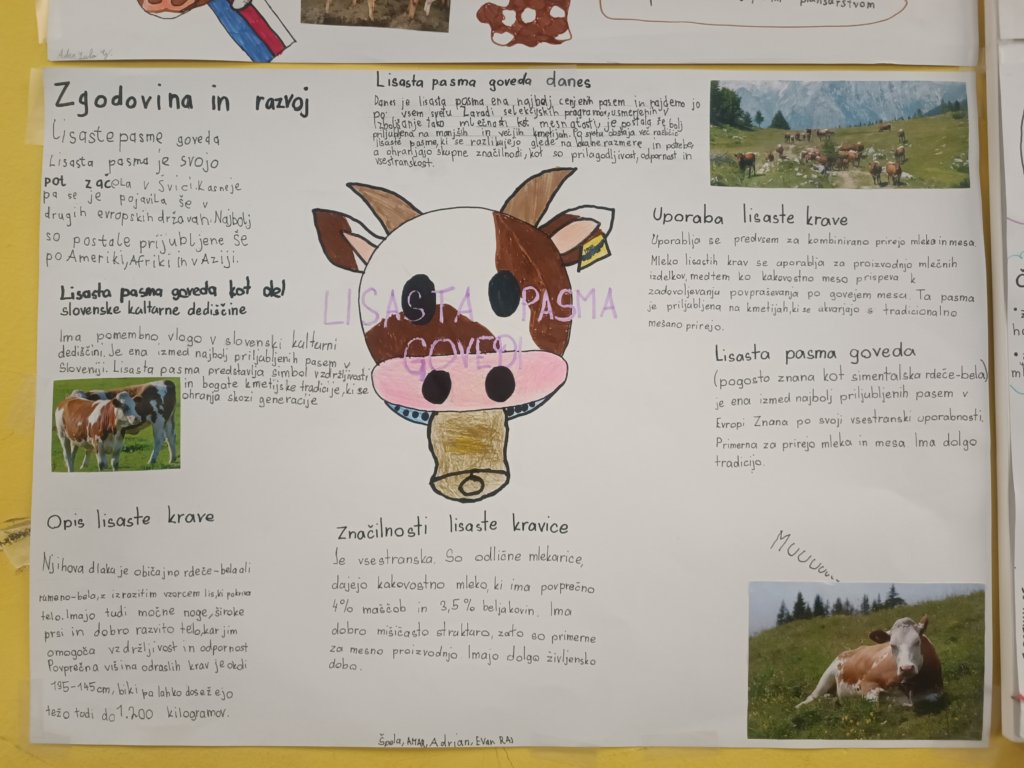 planšarstvom
Zgodovina in razvoj
Lisaste pasme goveda
Lisasta pasma je svojo
pot začela v Švici. Kasneje
pa se je pojavila še v
drugih evropskih državah. Najbolj
so postale prijubljene še
po Ameriki, Afriki in v Aziji.
Lisasta pasma goveda kot del
slovenske kalturne dediščine
Ima pomembno vlogo v slovenski kulturni
dediščini. Je ena izmed najbolj priljubljenih pasem v
Sloveniji. Lisasta pasma predstavlja simbol vzdržljivosti
in bogate kmetijske tradicije, ki se
ohranja skozi generacije
Opis lisaste krave
Njihova dlaka je običajno rdeče-bela ali
rumeno-bela, z izrazitim vzorcem lis, ki pokriva
telo. Imajo tudi močne noge, široke
prsi in dobro razvito telo, kar jim
omogoča vzdržljivost in odpornost
Povprečna višina odraslih krav je okoli
135-145cm, biki pa lahko dosežejo
težo tudi do 1.200 kilogramov.
Lisasta pasma goveda danes
Danes je lisasta pasma ena najbolj cenjenih pasem in najdemo jo
po vsem svetu. Zaradi selekcijskih programov, usmerjenih v
izboljšanje tako mlečnosti kot mesnatosti, je postala še bolj
priljubljena na manjših in večjih kmetijah. Po svetu obstaja več različic
lisaste pasme, ki se razlikujejo glede na lokalne razmere in potrebe
a ohranjajo skupne značilnosti, kot so prilagodljivost, odpornost in
vsestranskost.
LISASTA PASMA
GOVEDI
Značilnosti lisaste kravice
Je vsestranska. So odlične mlekarice,
dajejo kakovostno mleko, ki ima povprečno
4% maščob in 3,5% beljakovin. Ima
dobro mišičasto struktaro, zato so primerne
za mesno proizvodnjo. Imajo dolgo življensko
dobo.
Uporaba lisaste krave
Uporablja se predvsem za kombinirano prirejo mleka in mesa
Mleko lisastih krav se aporablja za proizvodnjo mlečnih
izdelkov, medtem ko kakovostno meso prispeva k
zadovoljevanju povpraševanja po govejem mesu. Ta pasma
je priljubljena na kmetijah, ki se ukvarjajo s tradicionalno
mešano prirejo.
Lisasta pasma goveda
(pogosto znana kot simentalska rdeče-bela)
je ena izmed najbolj priljubljenih pasem v
Evropi Znana po svoji vsestranski uporabnosti.
Primerna za prirejo mleka in mesa Ima dolgo
tradicijo.
Muuuuu...
Špela, AMAR, Adrian, Evan RAJ